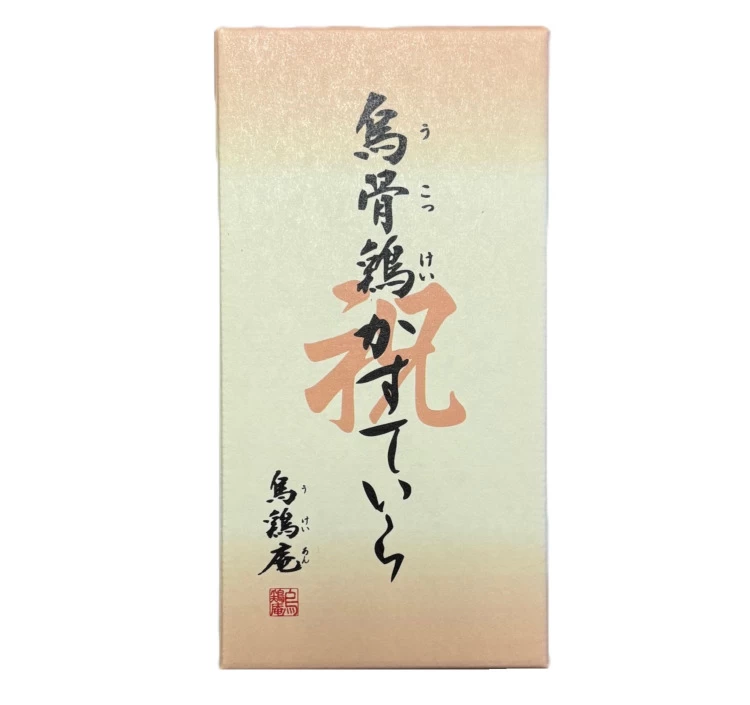 烏骨鶏かすていら
うこっけい
祝
烏鶏庵
うけいあん
烏鶏庵